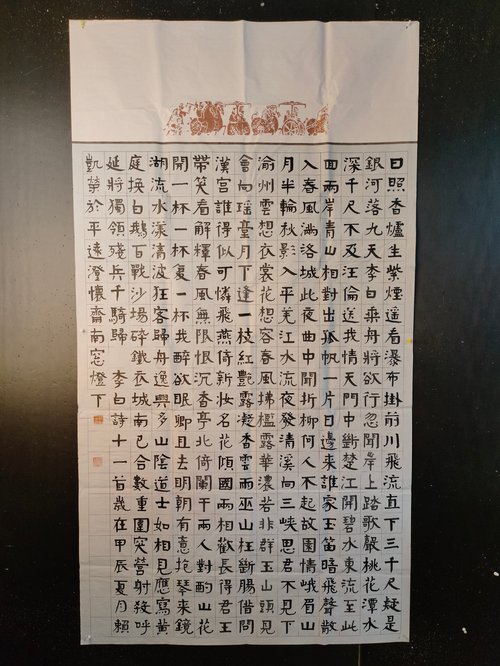 日照香爐生紫煙遙看瀑布掛前川飛流直下三千尺疑是
銀河落九天李白乘舟將欲行忽聞岸上踏歌聲桃花潭水
深千尺不及汪倫送我情天門中斷楚江開碧水東流至此
面兩岸青山相對出孤帆一片日邊來誰家玉笛暗飛聲散
入春風滿洛城此夜曲中聞折柳何人不起故園情峨眉山
月半輪秋影入平羌江水流夜發清溪向三峽思君不見下
渝州雲想衣裳花想容春風拂檻露華濃若非群玉山頭見
會向瑤臺月下逢一枝紅艷露凝香雲雨巫山枉斷腸借問
漢宮誰得似可憐飛燕倚新妝名花傾國兩相歡長得君王
帶笑看解釋春風無限恨沉香亭北倚闌干兩人對酌山花
開一杯一杯復一杯我醉欲眠卿且去明朝有意抱琴來鏡
湖流水漾清波狂客歸舟逸興多山陰道士如相見應寫黃
庭換白鵝百戰沙場碎鐵衣城南已合數重圍突營射殺呼
延將獨領殘兵千騎歸 李白詩十一首歲在甲辰夏月賴
凱榮於平遠澄懷齋南窓燈下